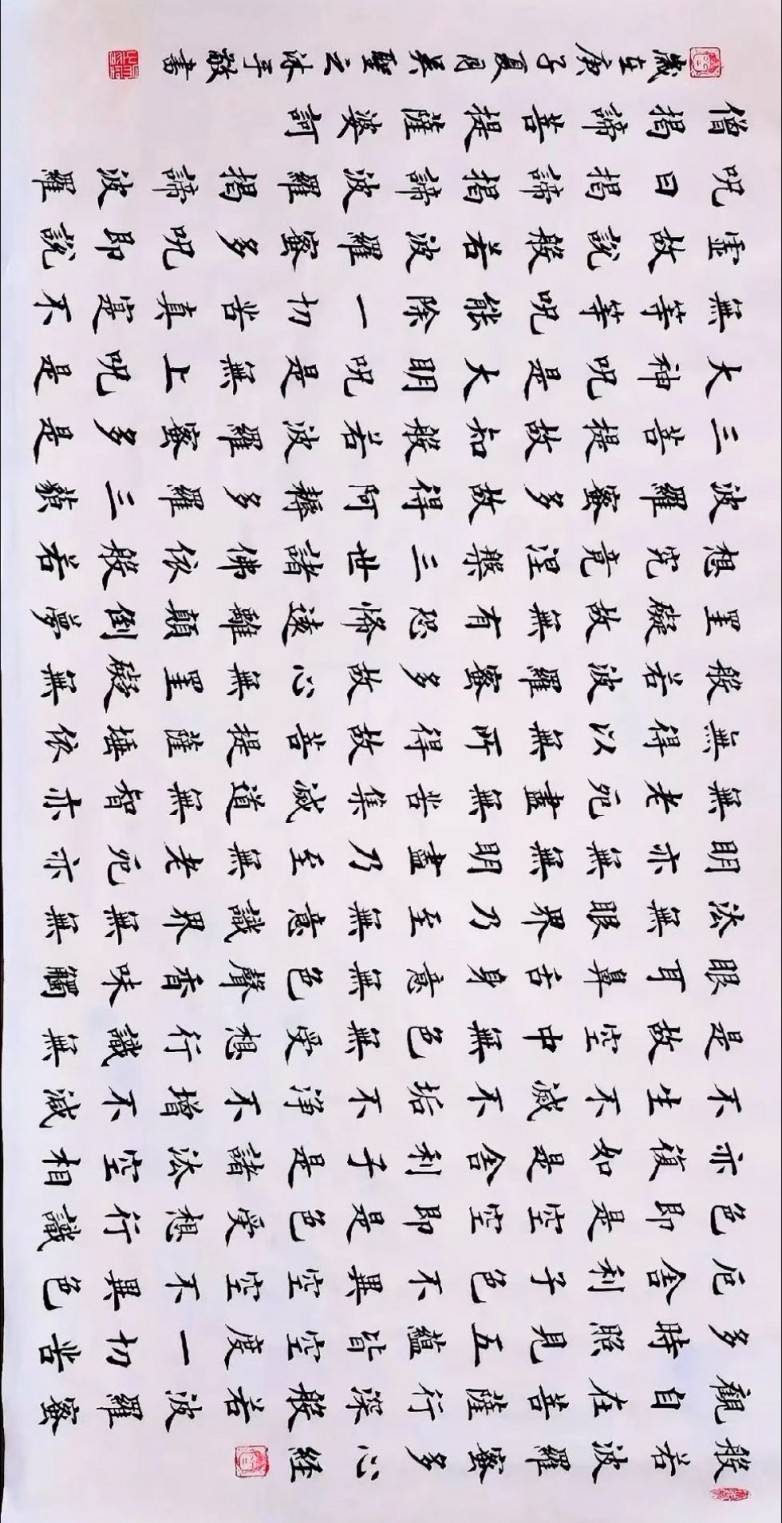 般若波羅蜜多心経
觀自在菩薩行深般若波羅蜜
多時照見五蘊皆空度一切苦
厄舍利子色不異空空不異色
色即是空空即是色受想行識
亦復如是舍利子是諸法空相
不生不滅不垢不淨不增不減
是故空中無色無受想行識無
眼耳鼻舌身意無色聲香味觸
法無眼界乃至無意識界無無
明亦無無明盡乃至無老死亦
無老死盡無苦集滅道無智亦
無得以無所得故菩提薩埵依
般若波羅蜜多故心無罣礙無
罣礙故無有恐怖遠離顛倒夢
想究竟涅槃三世諸佛依般若
波羅蜜多故得阿耨多羅三藐
三菩提故知般若波羅蜜多是
大神呪是大明呪是無上呪是
無等等呪能除一切苦真實不
虛故說般若波羅蜜多呪即說
呪曰揭諦揭諦波羅揭諦波羅
僧揭諦菩提薩婆訶
歲在庚子夏月吳聖之沐手敬書